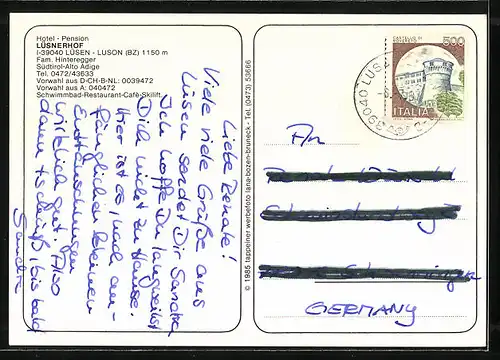 Hotel - Pension
LÜSNERHOF
I-39040 LÜSEN - LUSON (BZ) 1150 m
Fam. Hinteregger
Südtirol-Alto Adige
Tel. 0472/43633
Vorwahl aus D-CH-B-NL: 0039472
Vorwahl aus A: 040472
Schwimmbad-Restaurant-Café-Skilift
Liebe Renate!
Viele viele Grüße aus
Lüsen sendet Dir Sandra
Ich hoffe Du langweilst
Dich nicht zu Hause.
Hier ist es (nach an-
fänglichen kleinen
Enttäuschungen
wirklich gut. Also
dann tschüß, bis bald
Sandra
© 1985 tappeiner werbefoto lana-bozen-bruneck - Tel. (0473) 53666
500
ITALIA
39040 LUS
An
GERMANY